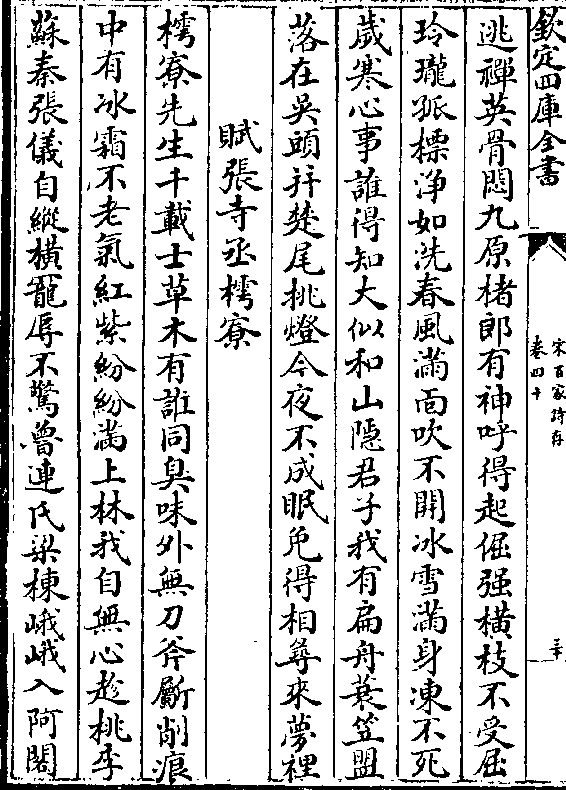 欽定四庫全書
宋百家詩存
卷四十
三十
逃禪英骨悶九原楮郎有神呼得起倔强橫枝不受屈
玲瓏孤標浄如洗春風滿面吹不開冰雪滿身凍不死
歲寒心事誰得知大似和山隱君子我有扁舟蓑笠盟
落在吳頭并楚尾挑燈今夜不成眠免得相尋來夢裡
賦張寺丞樗寮
樗寮先生千載士草木有誰同臭味外無刀斧斸削痕
中有冰霜不老氣紅紫紛紛滿上林我自無心趁桃李
蘇秦張儀自縱橫寵辱不驚魯連氏梁棟峨峨入阿閣